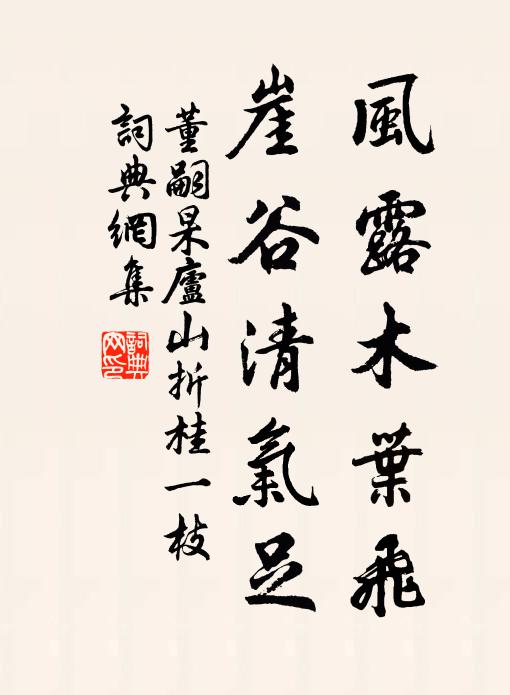 風露木葉飛
崖谷清氣足
董嗣杲廬山折桂一枝
詞典網集
詞典
网印